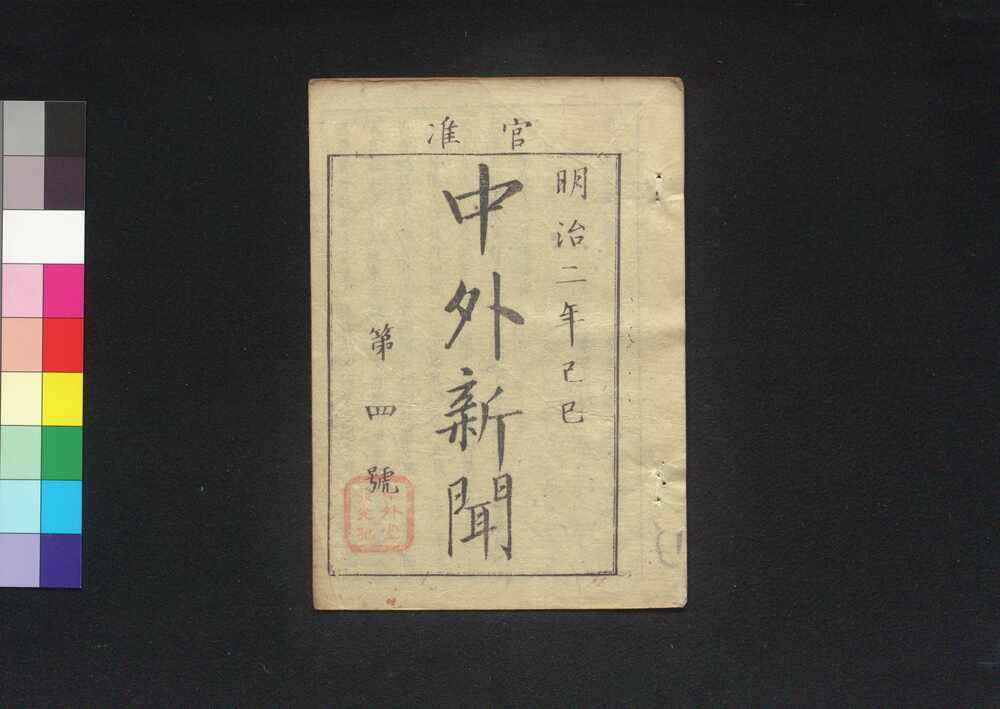 官准
明治二年己巳
中外新聞
第四號